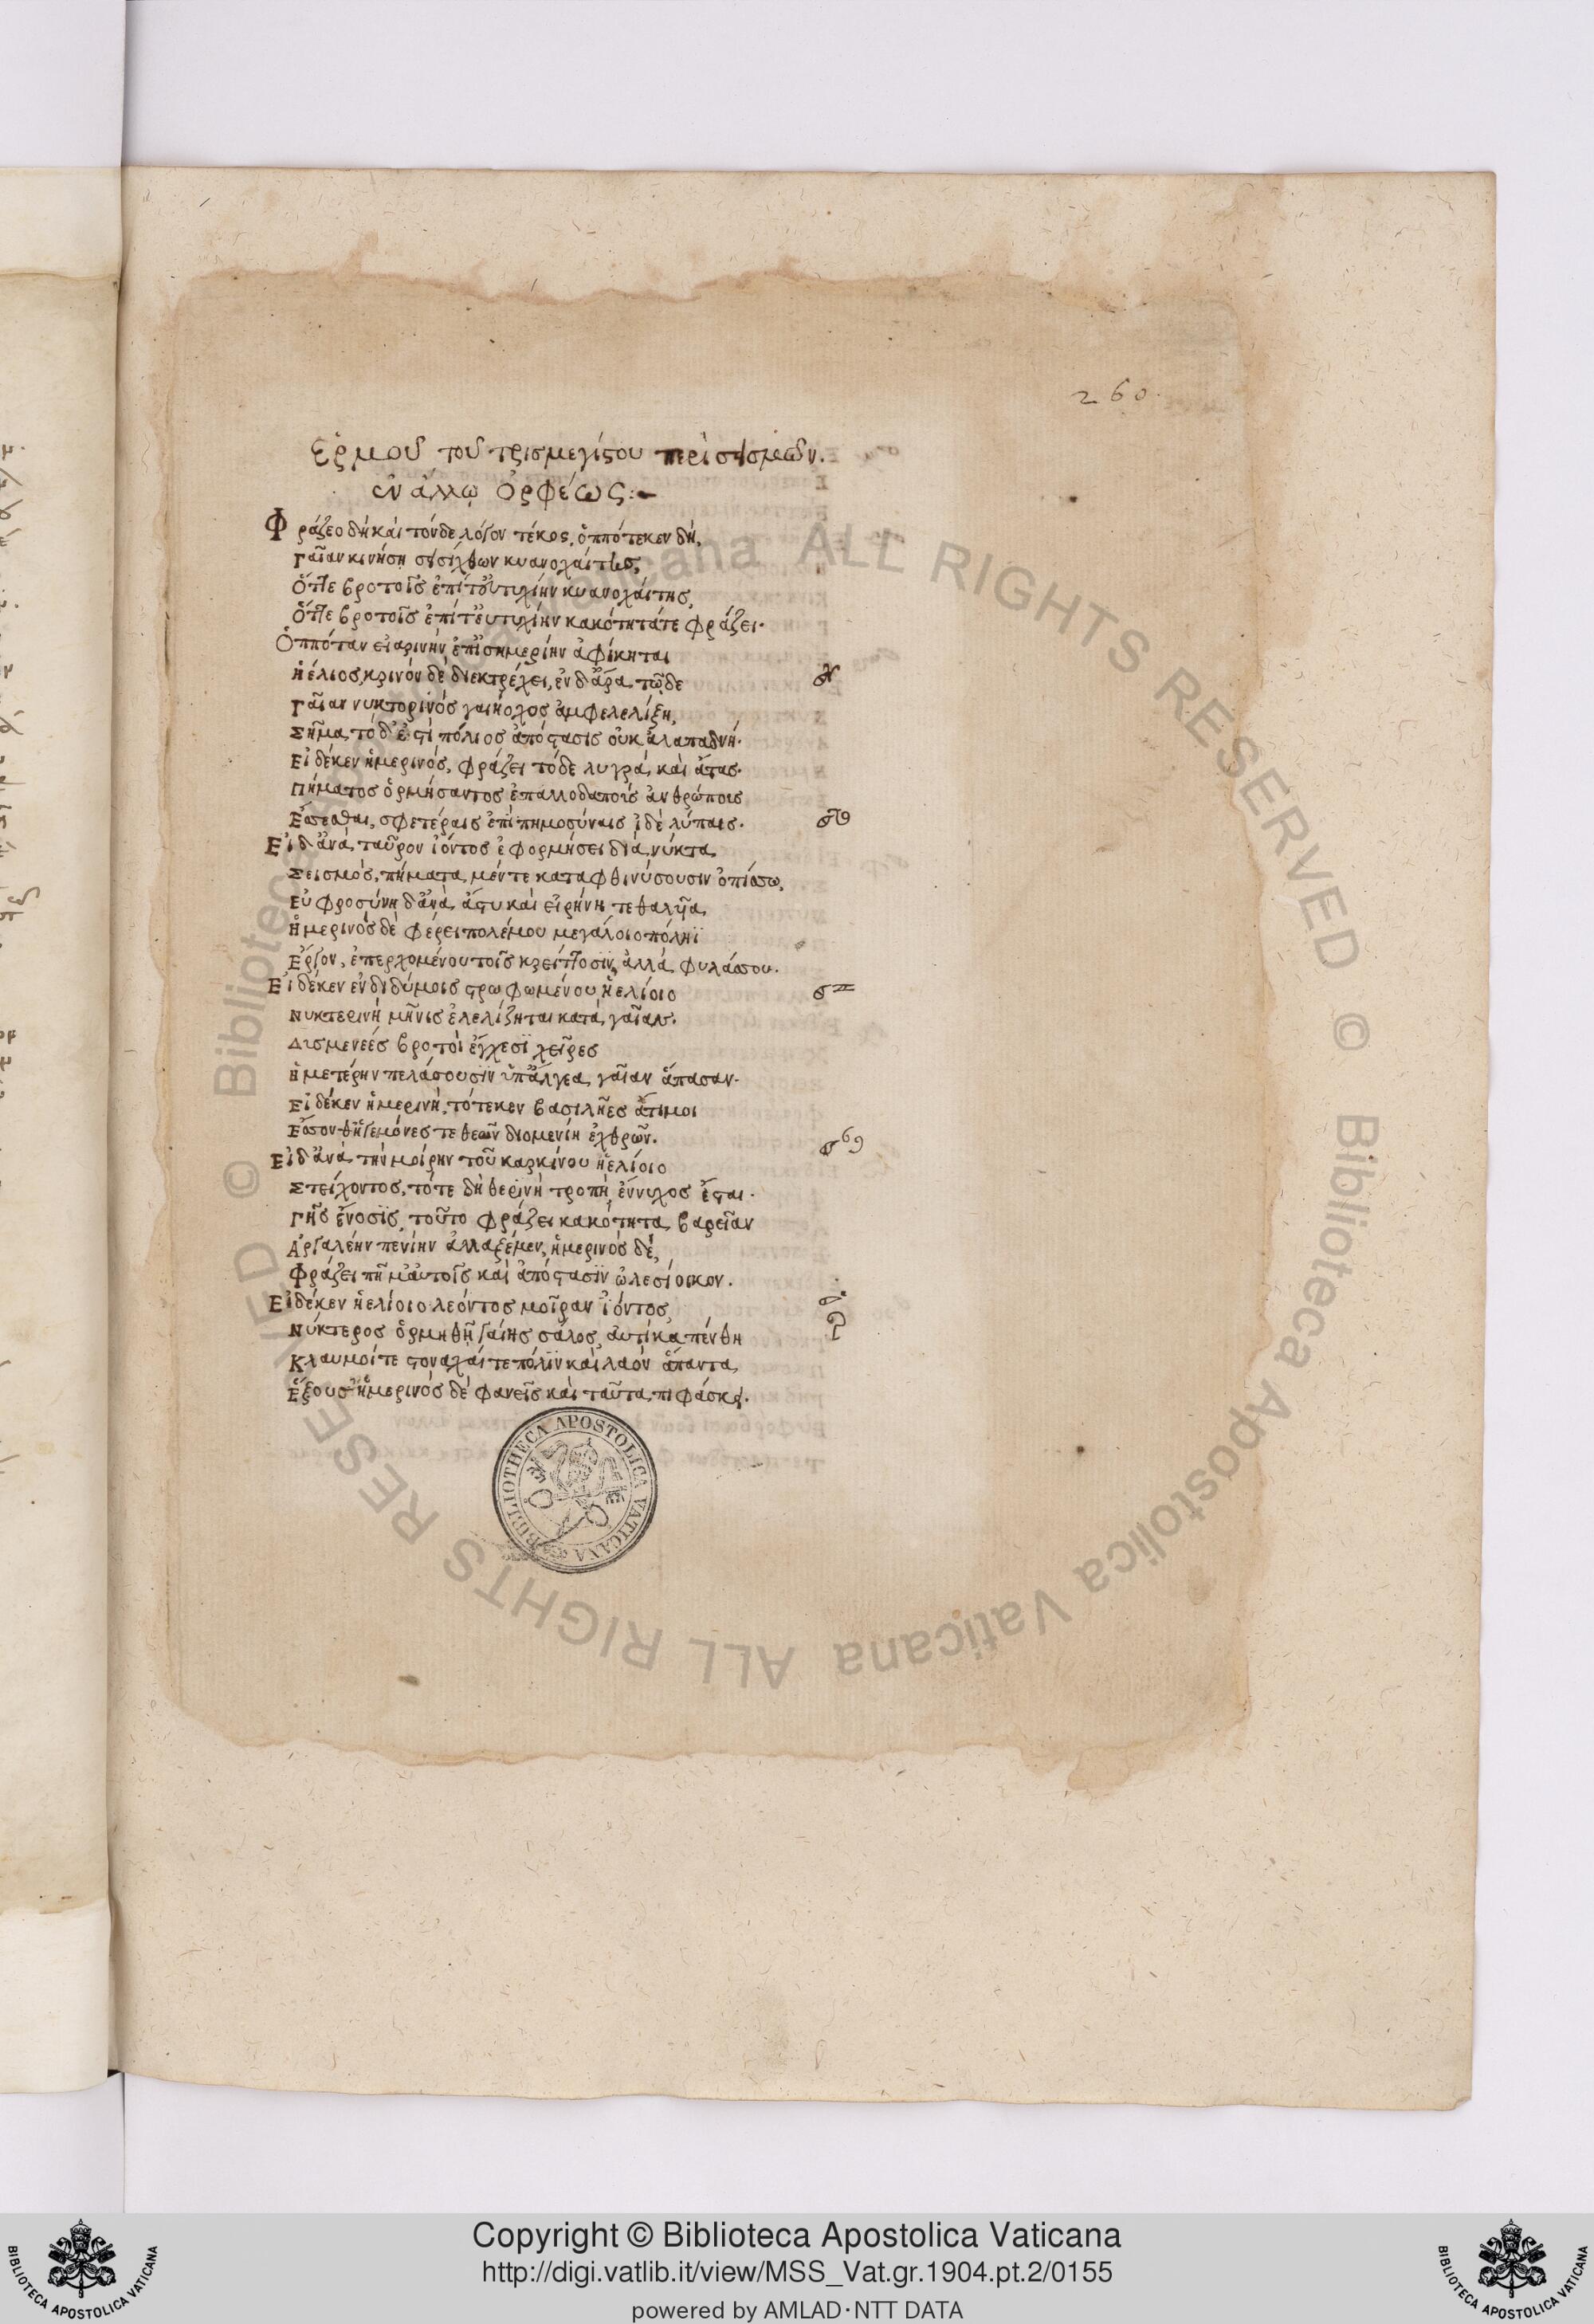 260.
Ἑρμοῦ τοῦ τρισμεγίστου περὶ σεισμῶν.
ἐν ἄλλῳ Ὀρφέως:-
Φράζεο δὴ καὶ τόνδε λόγον τέκος, ὁππότεκεν δὴ,
Γαῖαν κινήσῃ σεισίχθων κυανοχαίτης,
Ὅττε βροτοῖς ἐπί τ' εὐτυχίην κυανοχαίτης,
Ὅττε βροτοῖς ἐπί τ' εὐτυχίην κακότητάτε φράζει.
Ὁππόταν εἰαρινὴν ἐπ' ἰσημερίην ἀφίκηται
Ἠέλιος, κρινὸν δὲ διεκτρέχει, ἐν δ' ἄρα τῶδε
Γαῖαν νυκτορινὸς γαιήοχος ἀμφελελίξῃ,
Σῆμα τό δ' ἐστὶ πόλιος ἀπόστασις οὐκ ἀλαπαδνή.
Εἰ δέκεν ἡμερινὸς, φράζει τόδε λυγρὰ καὶ ἄτας.
Πήματος ὁρμήσαντος ἐπ' ἀλλοδαποῖς ἀνθρώποις
Ἔσσεσθαι, σφετέραις ἐπὶ πημοσύναις ἰδὲ λύπαις.
Εἰ δ' ἀνὰ ταῦρον ἰόντος ἐφορμήσει διὰ νύκτα
Σεισμὸς, πήματα μέν τε καταφθινύσουσιν ὀπίσσω,
Εὐφροσύνη δ' ἀνὰ ἄστυ καὶ εἰρήνη τεθαλῆα
Ἡμερινὸς δὲ φέρει πολέμου μεγάλοιο πόληϊ
Ἔργον, ἐπερχομένου τοῖς κρείττοσιν, ἀλλὰ φυλάσσου.
Εἰ δέκεν ἐν διδύμοις στρωφωμένου ἠελίοιο
Νυκτερινὴ μῆνις ἐλελίζηται κατὰ γαῖαν.
Δισμενέες βροτοὶ ἔγχεσϊ χεῖρες
Ἡμετέρην πελάσουσϊν ὑπ' ἄλγεα γαῖαν ἅπασαν.
Εἰ δέκεν ἡμερινὴ, τότεκεν βασιλῆες ἄτιμοι
Ἔσσονθ' ἡγεμόνες τε θεῶν διομενίη ἐχθρῶν.
Εἰ δ' ἀνὰ τὴν μοίρην τοῦ καρκίνου ἠελίοιο
Στείχοντος, τότε δὴ θερινὴ τροπὴ ἔννυχος ἔσται.
Γῆς ἔνοσϊς, τοῦτο φράζει κακότητα βαρεῖαν
Ἀργαλέην πενίην ἀλλαξέμεν, ἡμερινὸς δέ,
Φράζει πῆμ' αὐτοῖς καὶ ἀπόστασϊν ὠλεσίοικον.
Εἰ δέκεν ἠελίοιο λέοντος μοῖραν ἰόντος
Νύκτερος ὁρμηθῇ γαίης σάλος, αὐτίκα πένθη
Κλαυμοί τε στοναχαί τε πόλϊν καὶ λαὸν ἅπαντα
Ἕξουσ' ἡμερινὸς δὲ φανεὶς καὶ ταῦτα πιφάσκει.
BIBLIOTHECA APOSTOLICA VATICANA
© Biblioteca Apostolica Vaticana ALL RIGHTS RESERVED
© Biblioteca Apostolica Vaticana ALL RIGHTS RESERVED
Copyright © Biblioteca Apostolica Vaticana
http://digi.vatlib.it/view/MSS_Vat.gr.1904.pt.2/0155
powered by AMLAD·NTT DATA
BIBLIOTECA APOSTOLICA VATICANA
BIBLIOTECA APOSTOLICA VATICANA